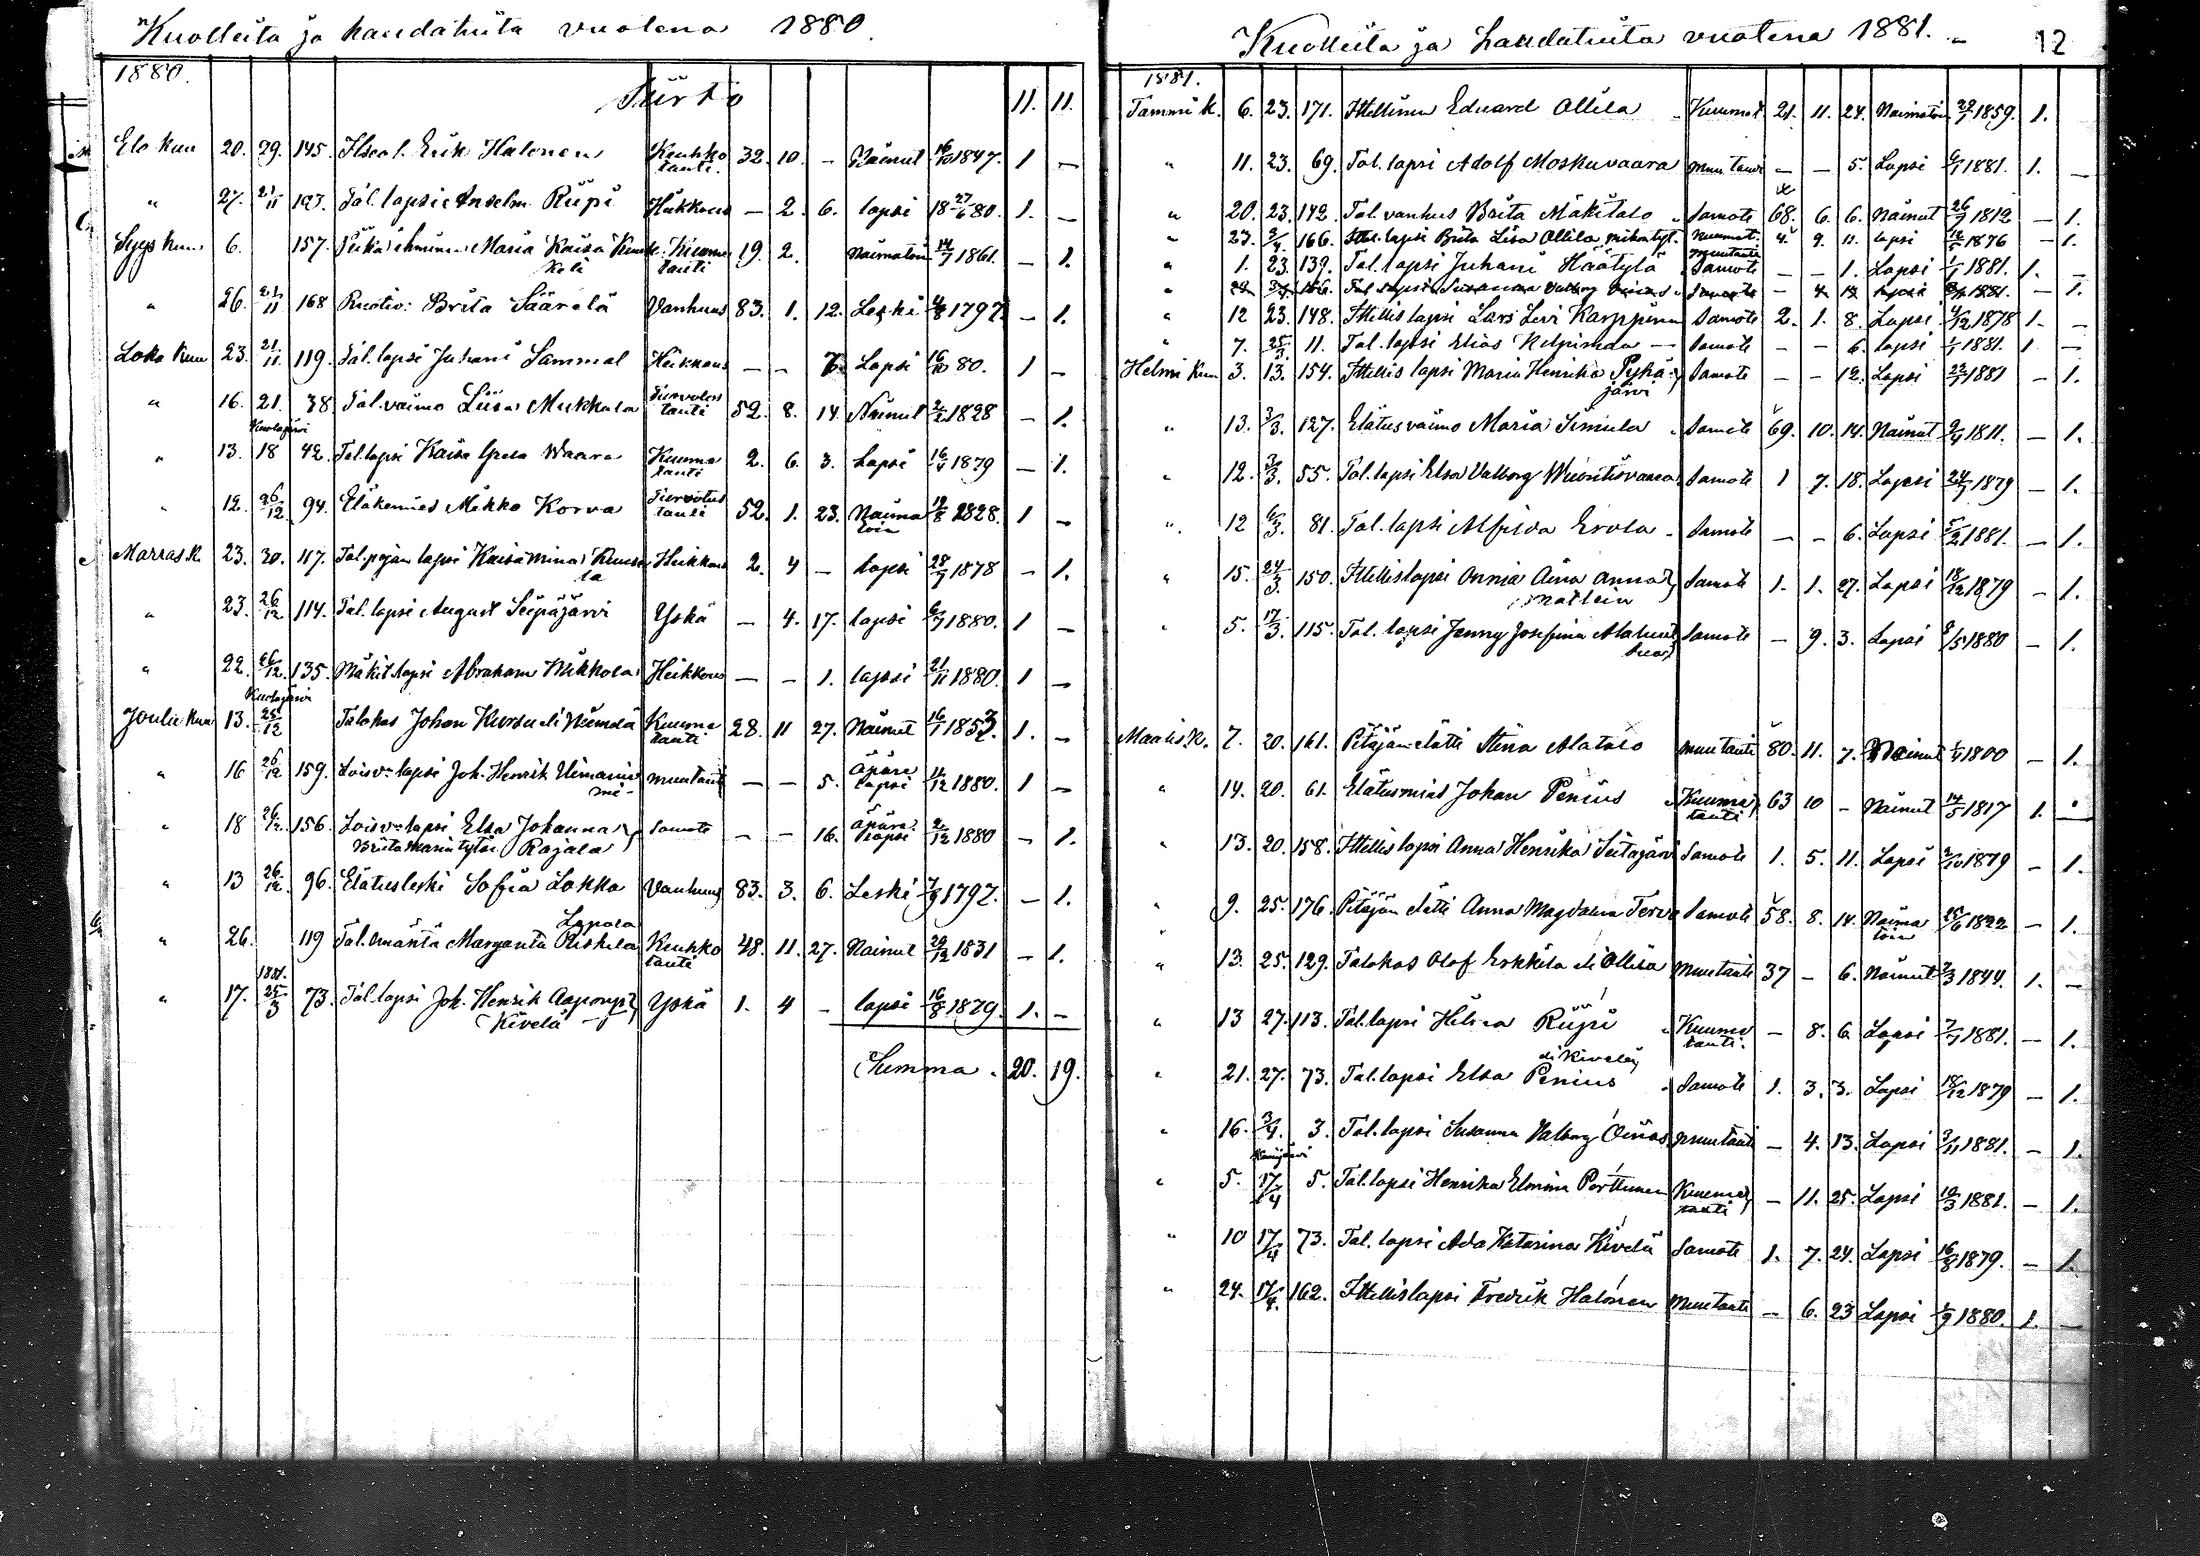 Kuolleita ja haudatuita vuotena 1880.
1880.
Siirto 11. 11.
Elo kuu 20. 29. 145. Itseol. Erik Halonen Keuhko tauti. 32. 10. - Nainut 16/10 1847. 1 -
" 27. 21/11 193. Tal. lapsi Anselm Riipi Heikkous - 2. 6. lapsi 18 27/6 80. 1. -
Syys kuu 6. 157. Piika Maria Kaisa Kuuma tauti 19. 2. Naimatoin 14/7 1861. - 1.
" 26. 21/11 168 Ruotiv: Brita Säärelä Vanhuus 83. 1. 12. Leski 1797. - 1.
Loka kuu 23. 21/11 119. Tal. lapsi Juhani Sammal Heikkous - - 7. Lapsi 16/10 80. 1 -
" 16. 21. 38 Tal. vaimo Liisa Mukkala tauti 52. 8. 14. Nainut 2/2 1828 - 1.
Kuolajärvi
" 13. 18 42. Tal. lapsi Kaisa Greta Waara Kuuma tauti 2. 6. 3. Lapsi 16/4 1879 - 1.
" 12. 26/12 94. Eläkemies Mikko Korva tauti 52. 1. 23. Naima toin 19/8 1828. 1 -
Marras k. 23. 30. 117. Tal. pojan lapsi Kaisa Mina Kuusela Heikkous 2. 4 - lapsi 28/7 1878 - 1.
" 23. 26/12 114. Tal. lapsi August Seipäjärvi Yskä - 4. 17. lapsi 6/7 1880. 1 -
" 22. 26/12 135. Mäkit. lapsi Abraham Mikkola Heikkous - - 1. lapsi 21/11 1880. 1 -
Kuolajärvi
Joulu kuu 13. 25/12 Talokas Johan Kursu eli Niemelä Kuuma tauti 28. 11 27. Nainut 16/1 1853. 1. -
" 16 26/12 159. Loisv. lapsi Joh. Henrik Uimaniemi muutauti - - 5. äpäre lapsi 11/12 1880. 1 -
" 18 26/12 156. Loisv. lapsi Elsa Johanna Briita Maria tytär Rajala Samote - - 16. äpäre lapsi 2/12 1880 - 1.
" 13 26/12 96. Elätusleski Sofia Lokka Vanhuus 83. 3. 6. Leski 7/9 1797. - 1.
" 26. 119 Tal. emäntä Margareta Keuhko tauti 48. 11. 27. Nainut 29/12 1831 - 1.
" 17. 1881. 25/3 73. Tal. lapsi Joh. Henrik Kivelä Yskä 1. 4 - lapsi 16/8 1879. 1. -
Summa. 20. 19.
Kuolleita ja haudatuita vuotena 1881. - 12
1881.
Tammi k. 6. 23. 171. Ittellinen Eduard Ollila Kuumat. 21. 11. 24. Naimatoin 1859. 1.
" 11. 23. 69. Tal. lapsi Adolf Moskuvaara muu tauti - - 5. Lapsi 6/1 1881. 1. -
" 20. 23. 142. Tal. vanhus Brita Mäkitalo Samote 68. 6. 6. Nainut 26/7 1812 - 1.
" 23. 3/4 166. Ittel. lapsi Brita Lisa Ollila Kuumat. 4. 9. 11. lapsi 1876 - 1.
" 1. 23. 139. Tal. lapsi Juhani Häätylä muutauti Samote - - 1. Lapsi 1/1 1881. 1. -
" Tal lapsi Susanna Valborg Samote - 4. lapsi 1881. - 1.
" 12 23. 148. Ittellis lapsi Lars Levi Karppinen Samote 2. 1. 8. Lapsi 4/12 1878 1. -
" 7. 25/3 11. Tal. lapsi Elias - Samote - - 6. lapsi 1/1 1881. 1 -
Helmi kuu 3. 13. 154. Ittellis lapsi Maria Henrika Pyhäjärvi Samote - - 12. Lapsi 22/1 1881 - 1.
" 13. 3/3. 127. Elätusvaimo Maria Simula Samote 69. 10. 14. Nainut 1811. - 1.
" 12. 3/3. 55. Tal. lapsi Elsa Valborg Samote 1 7. 18. Lapsi 24/7 1879 - 1.
" 12 6/3. 81. Tal. lapsi Alfrida Erola - Samote - - 6. Lapsi 5/2 1881. - 1.
" 15. 24/3. 150. Ittellislapsi Annia Aina Samote 1. 1. 27. Lapsi 18/12 1879 - 1.
" 5. 17/3. 115. Tal. lapsi Jenny Josefina Samote - 9. 3. Lapsi 2/5 1880 - 1.
Maalis k. 7. 20. 161. Pitäjän elätti Stina Alatalo muu tauti 80. 11. 7. Nainut 1800 - 1.
" 14. 20. 61. Elätusmies Johan Penius Kuuma tauti 63 10 - Nainut 14/5 1817 1. -
" 13. 20. 158. Ittellis lapsi Anna Henrika Siitajärvi Samote 1. 5. 11. Lapsi 2/10 1879 - 1.
" 9. 25. 176. Pitäjän elätti Anna Magdalena Terva Samote 58. 8. 14. Naima toin 25/6 1822 - 1.
" 13. 25. 129. Talokas Olof Erkkilä eli Ollila Muutauti 37 - 6. Nainut 7/3 1844. 1. -
" 13 27. 113. Tal. lapsi Hilma Riipi Kuuma tauti. - 8. 6. Lapsi 7/7 1881. - 1.
" 21. 27. 73. Tal. lapsi Elsa Penius eli Kivelä Samote 1. 3. 3. Lapsi 18/12 1879 - 1.
" 16. 3/4. 3. Tal. lapsi Susanna Valborg Oinas muutauti - 4. 13. Lapsi 3/11 1881. - 1.
Kemijärvi
" 5. 17/4 5. Tal. lapsi Henrika Elmina Porttunen Kuuma tauti - 11. 25. Lapsi 10/3 1881. - 1.
" 10 17/4 73. Tal. lapsi Ada Katarina Kivelä Samote 1. 7. 24. Lapsi 16/8 1879. - 1.
" 24. 17/4. 162. Ittellislapsi Fredrik Halonen Muutauti - 6. 23 Lapsi 1/9 1880. 1. -